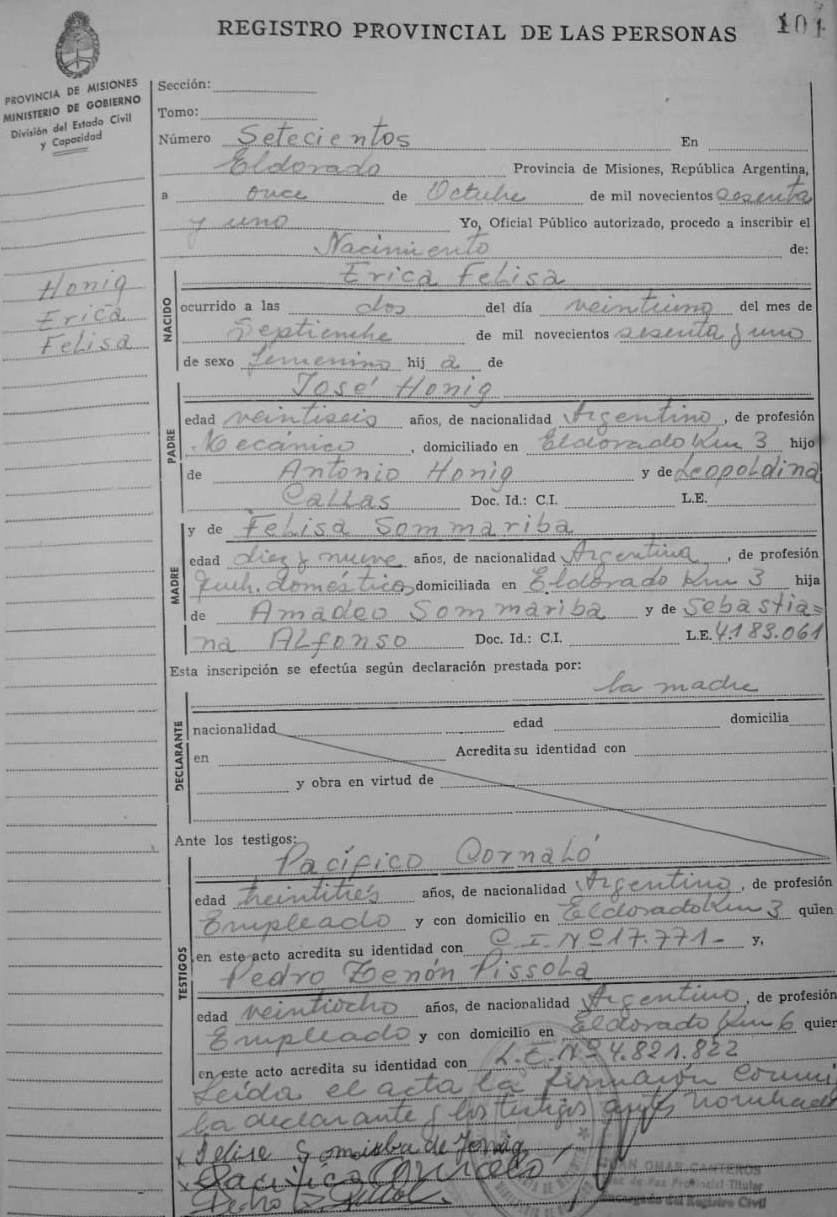 REGISTRO PROVINCIAL DE LAS PERSONAS
101
PROVINCIA DE MISIONES
MINISTERIO DE GOBIERNO
División del Estado Civil
y Capacidad
Honig
Erica
Felisa
Sección:
Tomo:
Número Setecientos En
Eldorado Provincia de Misiones, República Argentina,
a once de Octubre de mil novecientos sesenta
y uno Yo, Oficial Público autorizado, procedo a inscribir el
Nacimiento de:
NACIDO
Erica Felisa
ocurrido a las dos del día veintiuno del mes de
Septiembre de mil novecientos sesenta y uno
de sexo femenino hij a de
PADRE
José Honig
edad veintiseis años, de nacionalidad Argentino, de profesión
Mecánico, domiciliado en Eldorado Km 3 hijo
de Antonio Honig y de Leopoldina
Callas Doc. Id.: C.I. L.E.
MADRE
y de Felisa Sommariba
edad diez y nueve años, de nacionalidad Argentina, de profesión
Queh. domésticos domiciliada en Eldorado Km 3 hija
de Amadeo Sommariba y de Sebastia=
na Alfonso Doc. Id.: C.I. L.E. 4.183.061
Esta inscripción se efectúa según declaración prestada por:
la madre
DECLARANTE
nacionalidad edad domicilia
en Acredita su identidad con
y obra en virtud de
Ante los testigos:
TESTIGOS
Pacífico Cornaló
edad treintitrés años, de nacionalidad Argentino, de profesión
Empleado y con domicilio en Eldorado Km 3 quien
en este acto acredita su identidad con C.I. Nº 17.771- y,
Pedro Zenón Pissola
edad veintiocho años, de nacionalidad Argentino, de profesión
Empleado y con domicilio en Eldorado Km 6 quien
en este acto acredita su identidad con L.E. Nº 4.821.822
Leída el acta la firmaron conmi
la declarante y los testigos antes nombrado
x Felisa Somariba de Honig
x Pacífico Cornaló
Pedro Z.
JUAN OMAR CANTEROS
Juez de Paz Provincial Titular
Encargado del Registro Civil